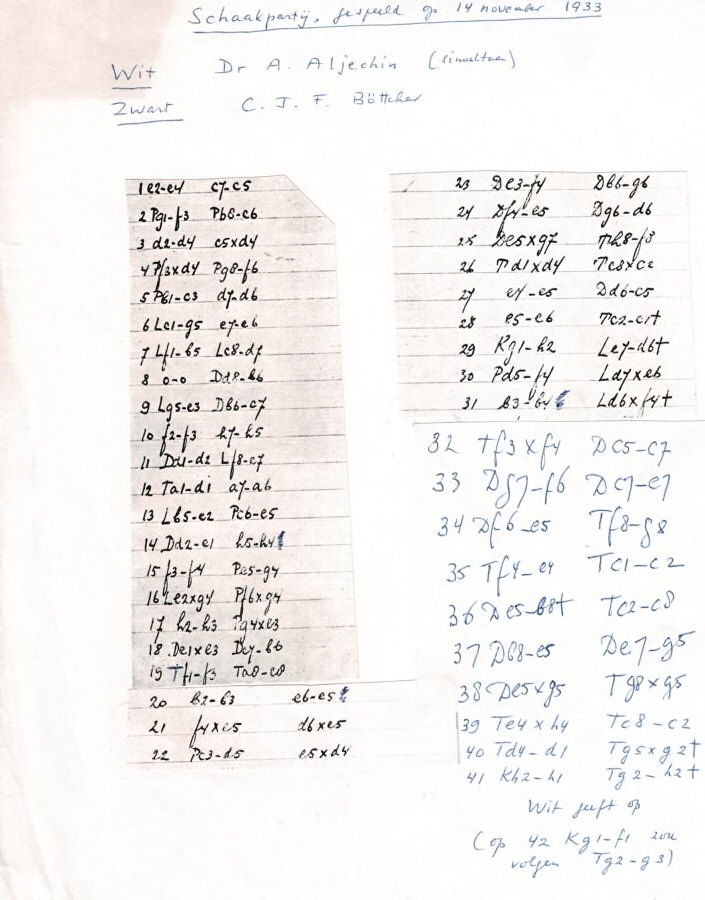 Schaakpartij, gespeeld op 14 november 1933
Wit Dr A. Aljechin (simultaan)
Zwart C. J. F. Böttcher
1 e2-e4 c7-c5
2 Pg1-f3 Pb8-c6
3 d2-d4 c5xd4
4 Pf3xd4 Pg8-f6
5 Pb1-c3 d7-d6
6 Lc1-g5 e7-e6
7 Lf1-b5 Lc8-d7
8 0-0 Dd8-b6
9 Lg5-e3 Db6-c7
10 f2-f3 h7-h5
11 Dd1-d2 Lf8-e7
12 Ta1-d1 a7-a6
13 Lb5-e2 Pc6-e5
14 Dd2-e1 h5-h4
15 f3-f4 Pe5-g4
16 Le2xg4 Pf6xg4
17 h2-h3 Pg4xe3
18 De1xe3 Dc7-b6
19 Tf1-f3 Ta8-c8
20 b2-b3 e6-e5
21 f4xe5 d6xe5
22 Pc3-d5 e5xd4
23 De3-f4 Db6-g6
24 Df4-e5 Dg6-d6
25 De5xg7 Th8-f8
26 Td1xd4 Tc8xc2
27 e4-e5 Dd6-c5
28 e5-e6 Tc2-c1†
29 Kg1-h2 Le7-d6†
30 Pd5-f4 Ld7xe6
31 b3-b4 Ld6xf4†
32 Tf3xf4 Dc5-c7
33 Dg7-f6 Dc7-e7
34 Df6-e5 Tf8-g8
35 Tf4-e4 Tc1-c2
36 De5-b8† Tc2-c8
37 Db8-e5 De7-g5
38 De5xg5 Tg8xg5
39 Te4xh4 Tc8-c2
40 Td4-d1 Tg5xg2†
41 Kh2-h1 Tg2-h2†
Wit geeft op
(op 42 Kg1-f1 zou
volgen Tg2-g3)